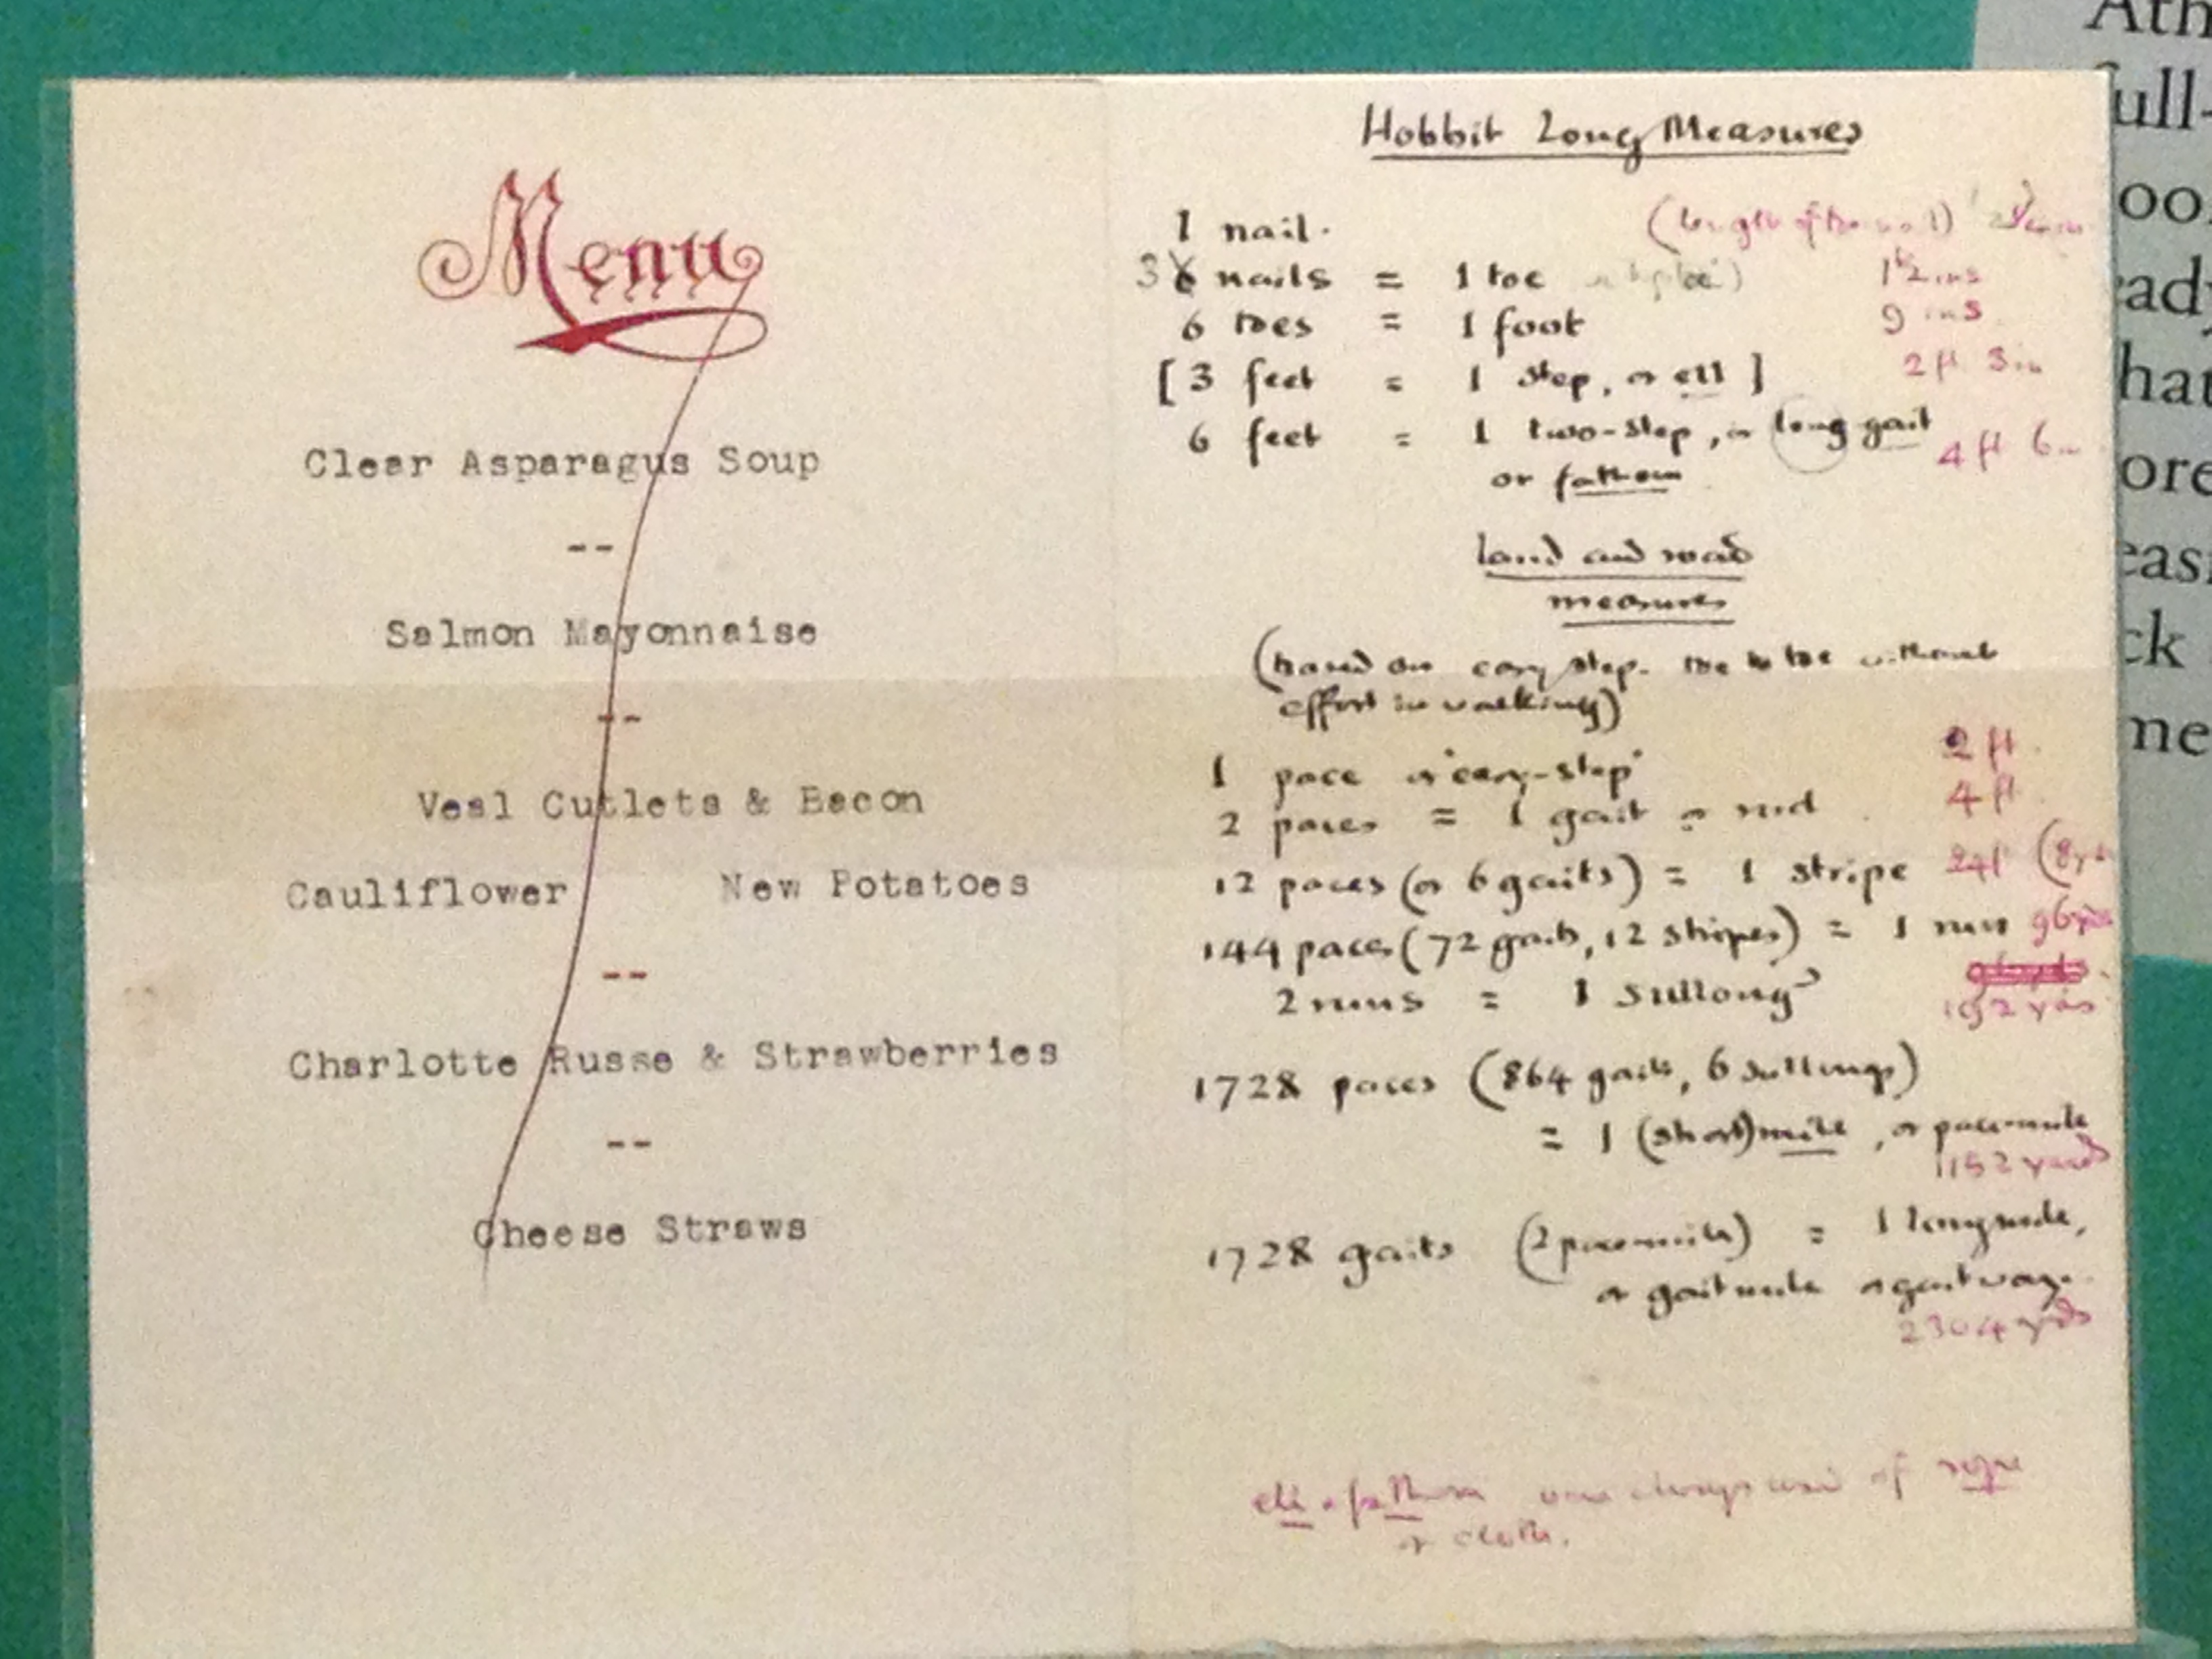 Menu
Clear Asparagus Soup
--
Salmon Mayonnaise
--
Veal Cutlets & Bacon
Cauliflower New Potatoes
--
Charlotte Russe & Strawberries
--
Cheese Straws
Hobbit Long Measures
1 nail. (length of
3 nails = 1 toe 1½ ins
6 toes = 1 foot 9 ins
[3 feet = 1 step, or ell] 2 ft 3in
6 feet = 1 two-step, or long gait 4 ft 6in
or fathom
land and road
measures
(based on easy step. toe to toe without
effort in walking)
1 pace or 'easy-step' 2 ft.
2 paces = 1 gait or 4 ft.
12 paces (or 6 gaits) = 1 stripe 24ft (8yds
144 paces (72 gaits, 12 stripes) = 1 run 96yds
2 runs = 1 sullong
192 yds
1728 paces (864 gaits, 6 sullongs)
= 1 (short) mile, or pace-mile
1152 yards
1728 gaits (2 pacemiles) = 1 longmile,
or gaitmile or gaitway.
2304 yds
ell or fathom were always used of rope
or cloth.
Ath
full-
oo
ady
hat
ore
eas
ck
me